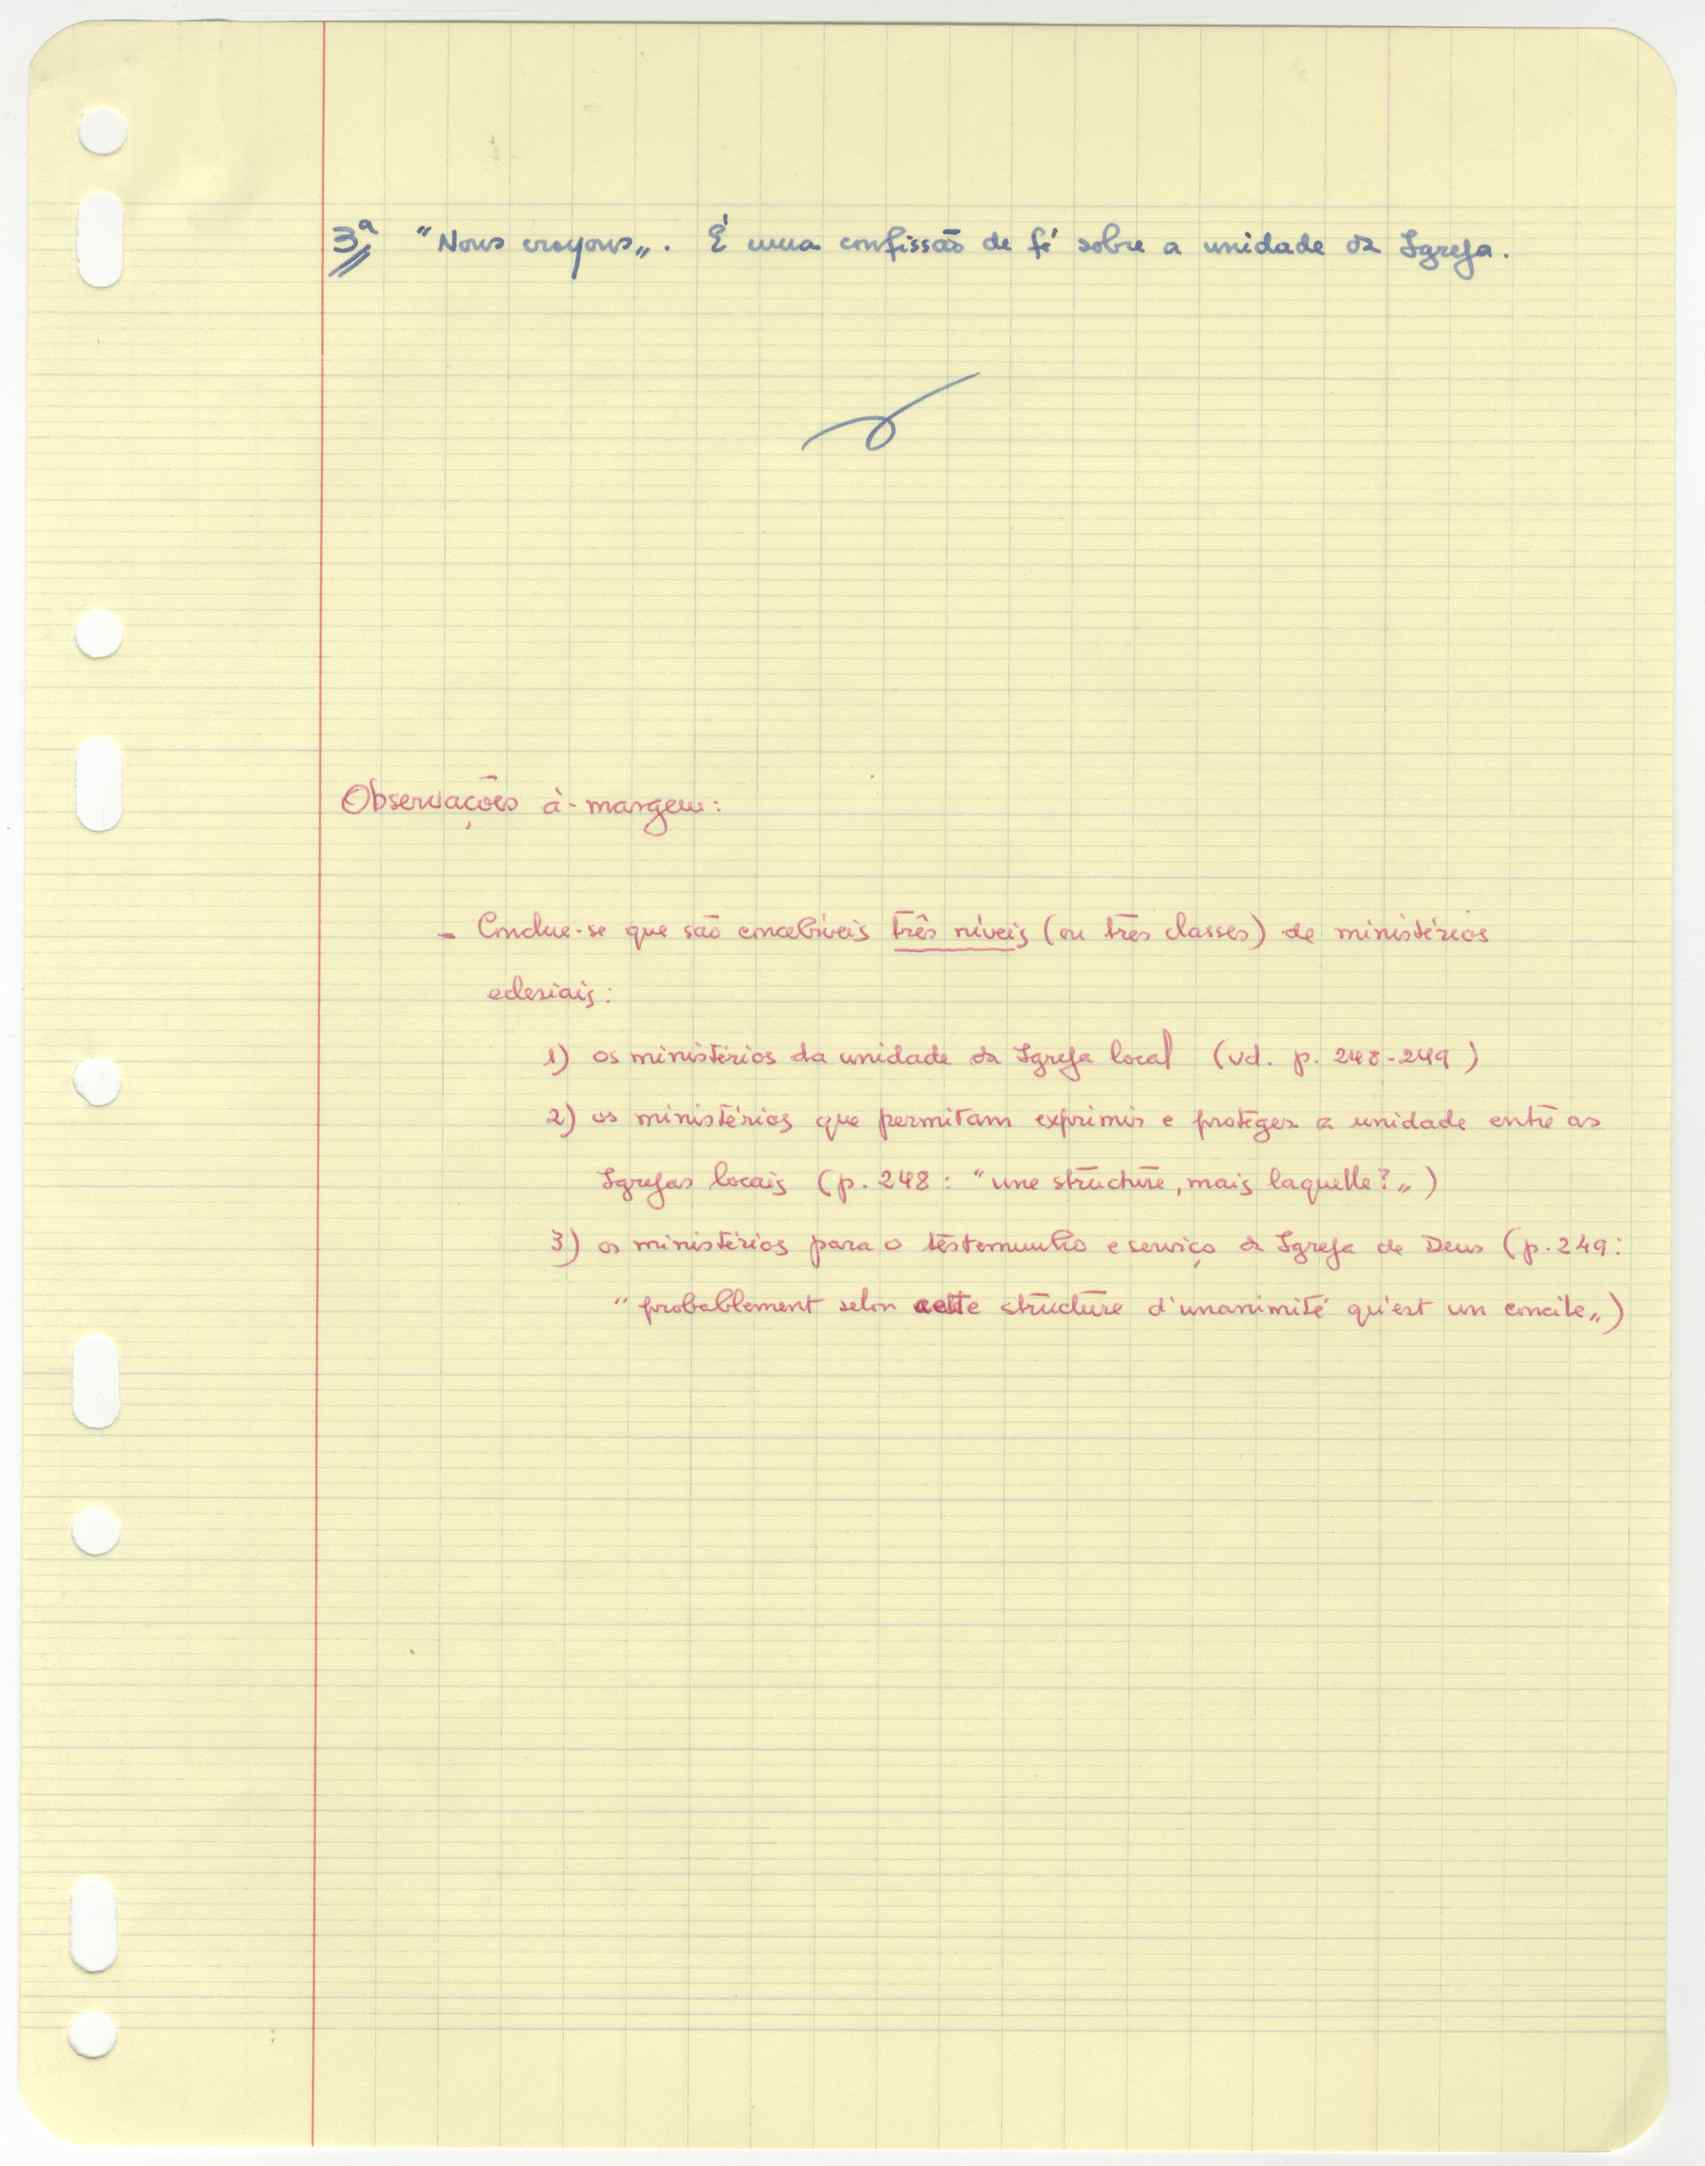 3ª "Nous croyons". É uma confissão de fé sobre a unidade da Igreja.
Observações à-margem:
- Conclue-se que são concebíveis três níveis (ou três classes) de ministérios
eclesiais:
1) os ministérios da unidade da Igreja local (vd. p. 248-249)
2) os ministérios que permitam exprimir e proteger a unidade entre as
Igrejas locais (p. 248: "une structure, mais laquelle?")
3) os ministérios para o testemunho e serviço da Igreja de Deus (p. 249:
"probablement selon cette structure d'unanimité qu'est un concile")